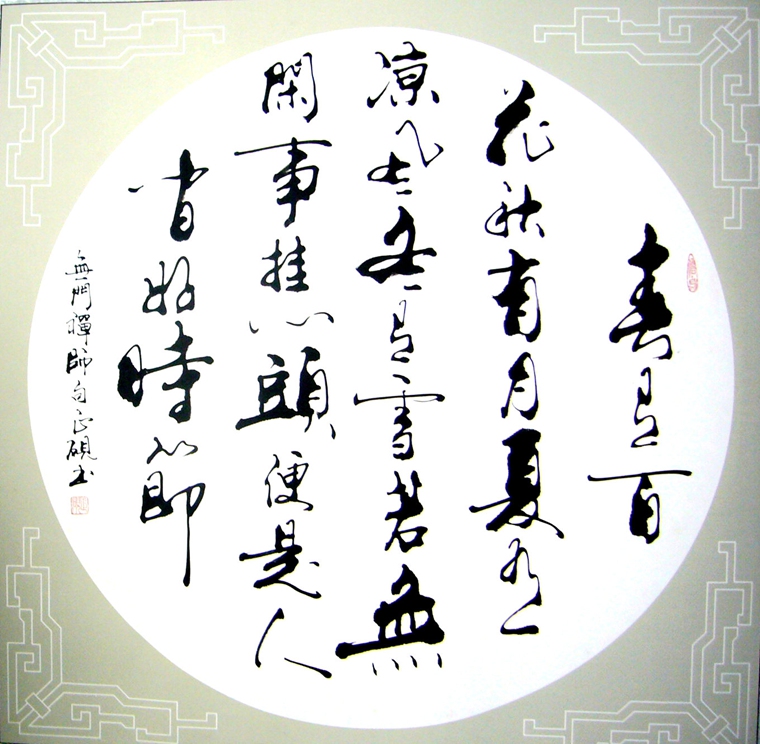 春有百
花秋有月夏有
凉風冬有雪若無
閑事挂心頭便是人
間好時節
無門禪師句正硯书